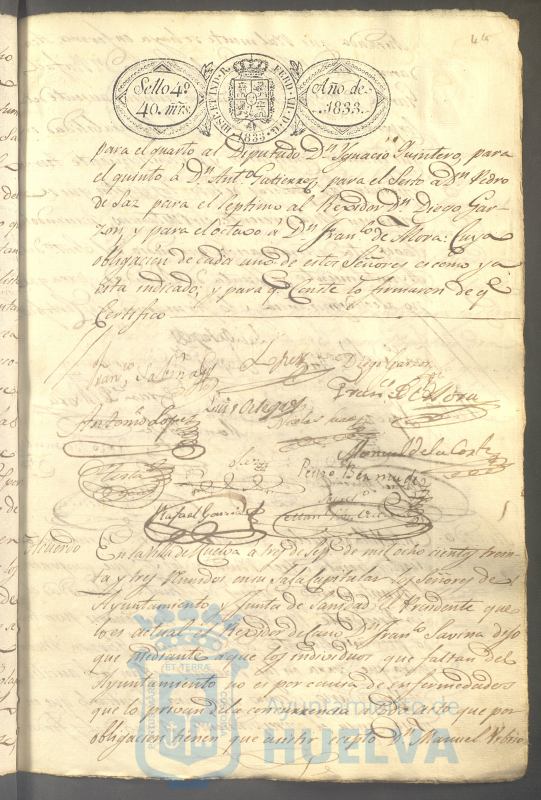 44
Sello 4º
40. mrs.
HISP. ET IND. R. FERD. VII. D. G.
1833
Año de
1833.
para el quarto al Diputado Dn. Ygnacio Quintero, para
el quinto a Dn. Antº. Gutierrez, para el Sesto a Dn. Pedro
de Saz para el Septimo al Rexidor Dn. Diego Gar-
zon, y para el octavo a Dn. Franco. de Mora: Cuya
obligacion de cada uno de estos Señores es como ya
está indicado; y para q. Conste lo firmaron de q.
Certifico
Diego Garzon
Franco. De Mora
Antonio Lopez
Luis Ortega
Manuel de la Corte
Pedro Bermudez
Rafael Gonzalez
Acuerdo
En la Villa de Huelva a tres de Sepe. de mil ocho cientos trein-
ta y tres Reunidos en su Sala Capitular los Señores de
Ayuntamiento y Junta de Sanidad el Presidente que
lo es actual el Rexidor decano Dn. Franco. Savina dijo
que mediante a que los individuos que faltan del
Ayuntamiento no es por causa de enfermedades
que lo privan de la concurrencia a un acto que por
obligacion tienen que asistir cepto Dn. Manuel
Ayuntamiento de
HUELVA